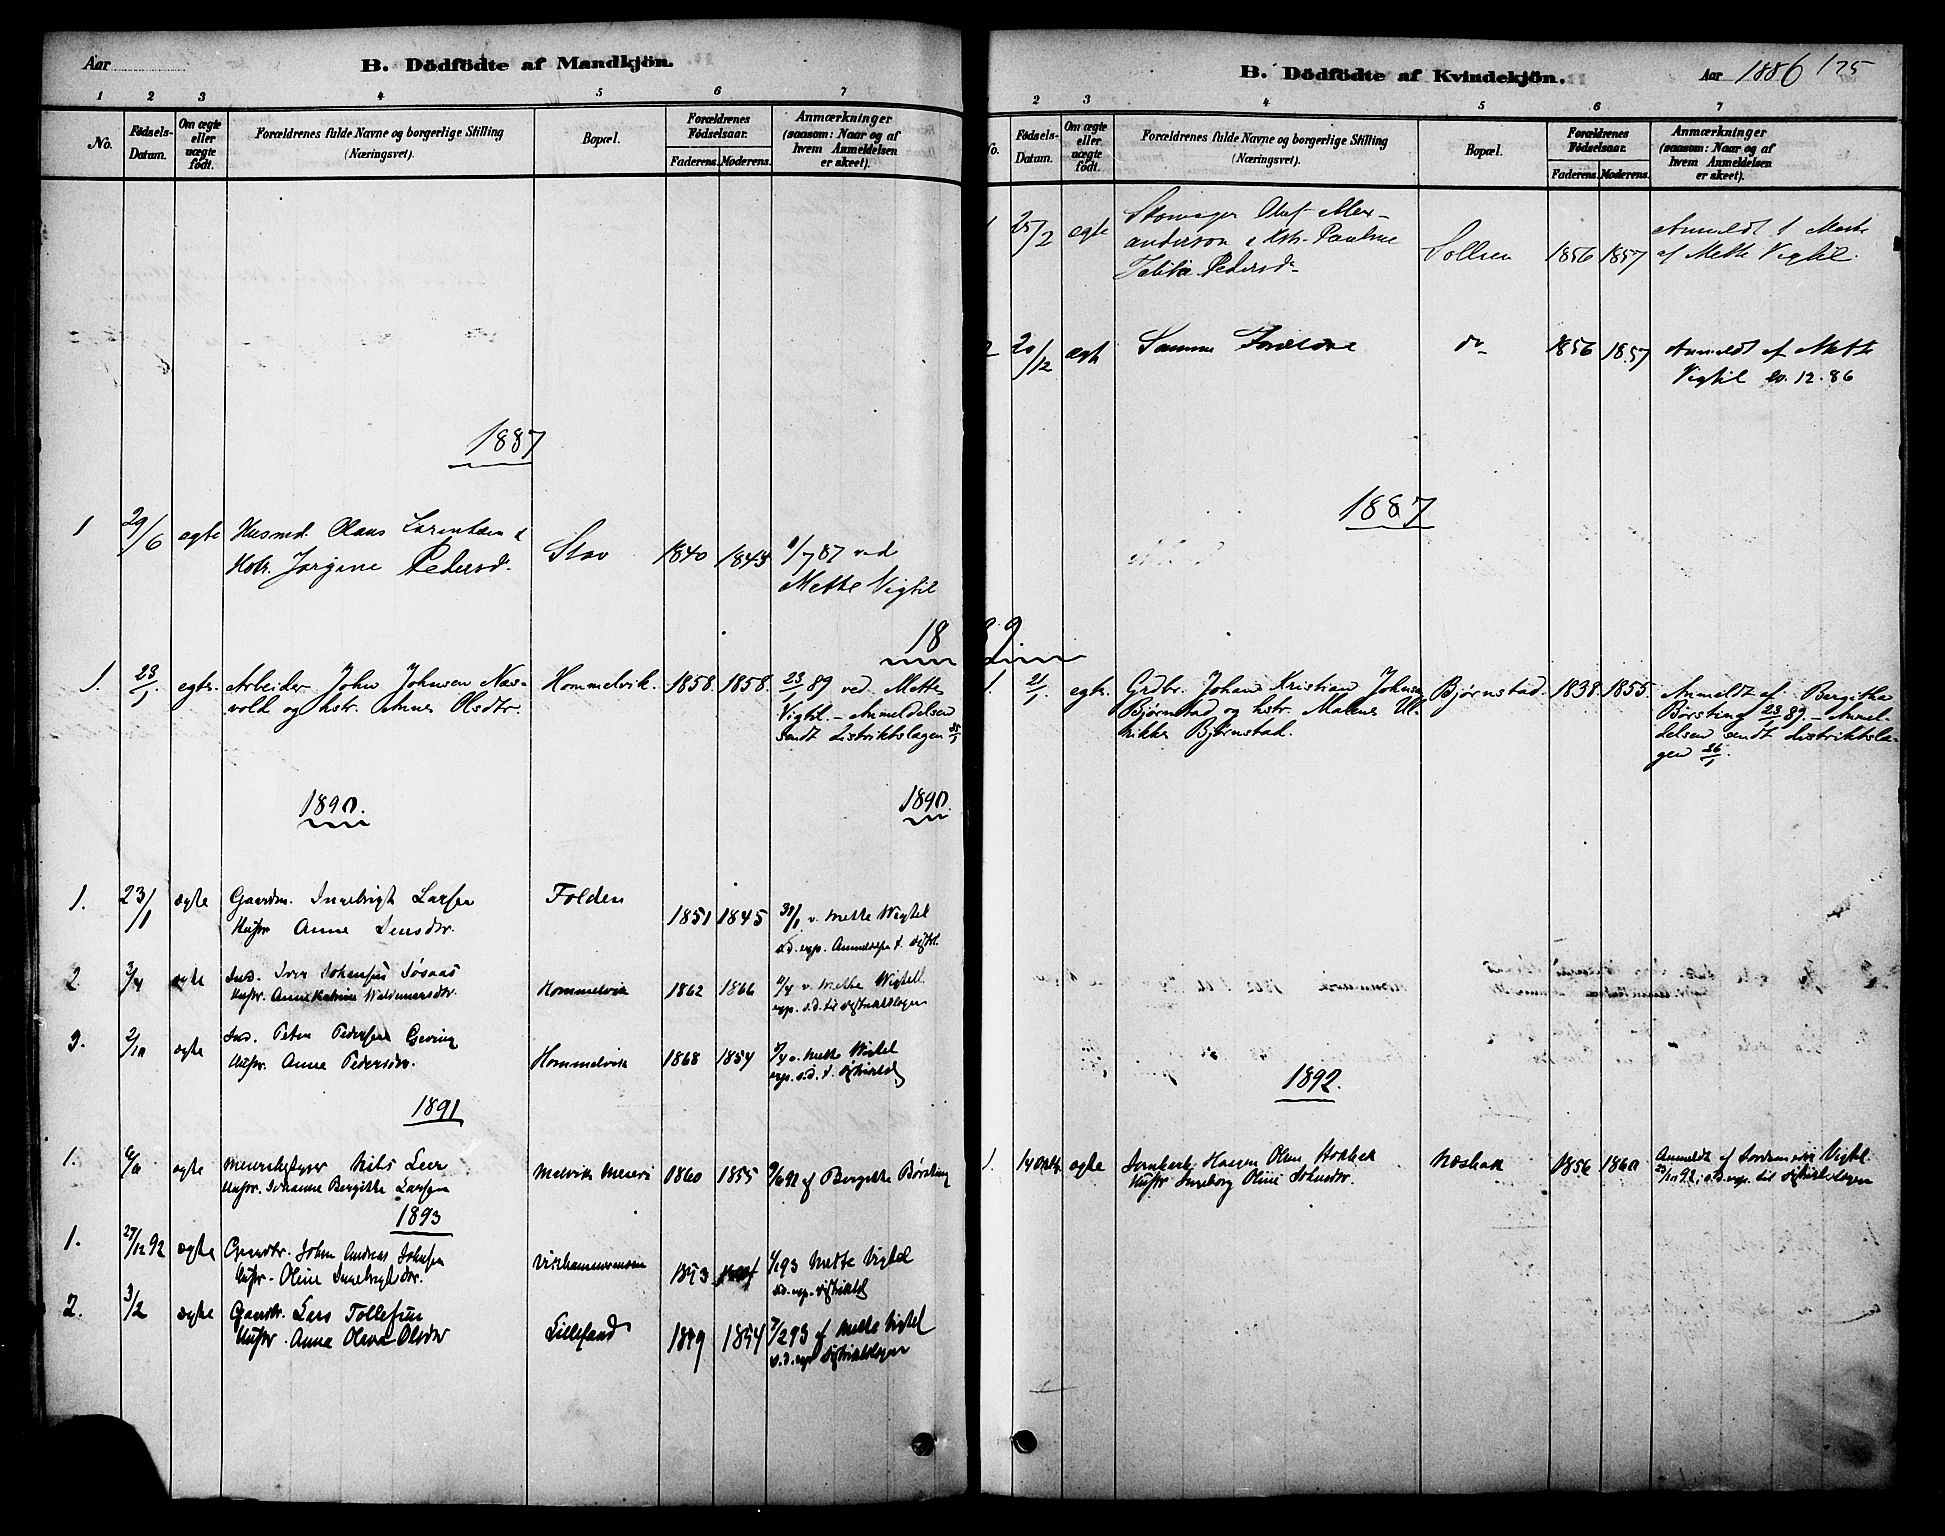 Aar
B. Dödfödte af Mandkjön.
1 2 3 4 5 6 7
No.
Födsels-
Datum.
Om ægte
eller
uægte
født.
Forældrenes fulde Navne og borgerlige Stilling
(Næringsvei).
Bopæl.
Forældrenes
Födselsaar.
Faderens. Moderens.
Anmærkninger
(saasom: Naar og af
hvem Anmeldelsen
er skeet).
1887
1 29/6 egte Husmd. Olaus Lorentsen &
Hstr. Jørgine Pedersd.
Stav 1840 1843
1/7 87 ved
Mette Vigtil
1889.
1. 23/1. egte. Arbeider John Johnsen Næs-
vold og hstr. Annes Olsdtr.
Hommelvik. 1858. 1858.
23/1 89 ved Mette
Vigtil. – Anmeldelsen
sendt distriktslægen
1890. 1890.
1. 23/1 ægte Gaardm. Ingebrigt Larsen
Hustr Anne Jensdtr.
Folden 1851 1845
v. Mette Wigtel
2 3/4 ægte Ind. Iver Johansen
Hustr. Anne Katrine Waldemarsdtr.
Hommelvik 1862 1866
v. Mette Wigtell
exp. s.d. til distriktslægen
3. 2/10 ægte Ind. Peter Pedersen
Hustr Anne Pedersdtr.
Hommelvik 1868 1854
v. Mette Wigtel
exp. s.d. t.
1891
1. ægte Meieribestyrer Nils Leer
Hustr. Johanne Bergitte Larsen
Melvik Meieri 1860 1855
af Bergitte Børsting
1893
1. 27/12 92 ægte Gaardbr. Johan Andreas Johnsen
Hustr. Oline Ingebrigtsdtr.
93 Mette Vigtel
2. 3/2 ægte Gaardbr. Lars Tollefsen
Hustr Anna Olava Olsdtr
1849 1854
7/2 93 af Mette Vigtel
s.d. exp distriktslægen
B. Dödfödte af Kvindekjön.
Aar 1886 175
2 3 4 5 6 7
No.
Födsels-
Datum.
Om ægte
eller
uægte
födt.
Forældrenes fulde Navne og borgerlige Stilling
(Næringsvei).
Bopæl.
Forældrenes
Födselsaar.
Faderens. Moderens.
Anmærkninger
(saasom: Naar og af
hvem Anmeldelsen
er skeet).
1 25/2 egte Skomager Oluf Alex-
anderson & Hstr. Pauline
Pedersdr
1856 1857
Anmeldt 1 Marts
af Mette Vigtil.
2 20/12 ægte Samme Forældre
do 1856 1857
Anmeldt af Mette
Vigtil 20.12.86
1887
1. 21/1. egte. Grdbr. Johan Kristian Johnsen
Bjørnstad og hstr. Malene Ul-
rikke Bjørnstad.
Bjørnstad. 1838. 1855.
Anmeldt af Bergitha
Børsting 23/1 89. – Anmel-
delsen sendt distriktslæ-
gen 26/1.
1892.
1. 14 Oktb. ægte Jernbarb. Haagen Olsen
Hustr Ingeborg Oline Johnsdtr.
1856 1860
Anmeldt af Jordemoder Vigtel
92, s.d. exp. til distriktslægen